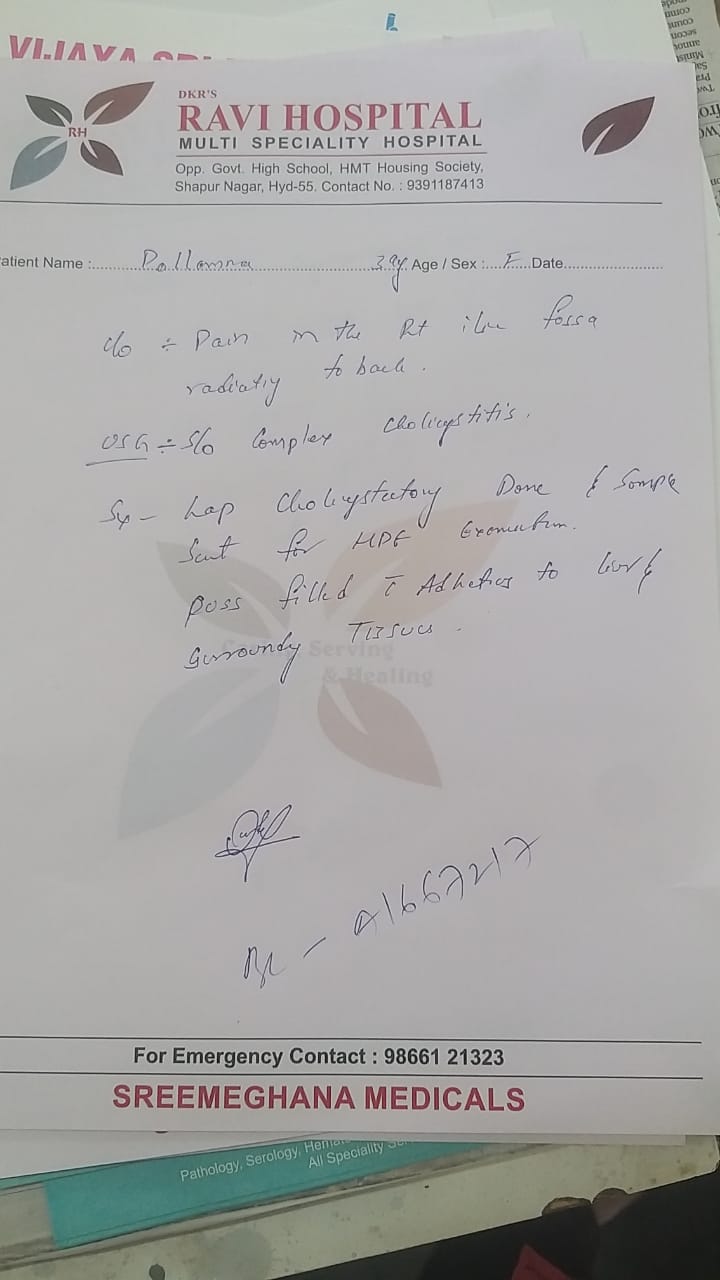 VIJAYA
DKR'S
RH
RAVI HOSPITAL
MULTI SPECIALITY HOSPITAL
Opp. Govt. High School, HMT Housing Society,
Shapur Nagar, Hyd-55. Contact No. : 9391187413
atient Name :............................39y Age / Sex :....F....Date......................
c/o ÷ Pain in the Rt fossa
radiatiy to back.
USG ÷ S/o Complex Cholicystitis.
Sx - Lap Cholicystectomy Done & Sample
Sent for HPE Examination.
puss filled c̄ Adhetics to liver &
Surroundy Tissues.
Serving
& Healing
A1667217
For Emergency Contact : 98661 21323
SREEMEGHANA MEDICALS
Pathology, Serology,
All Speciality